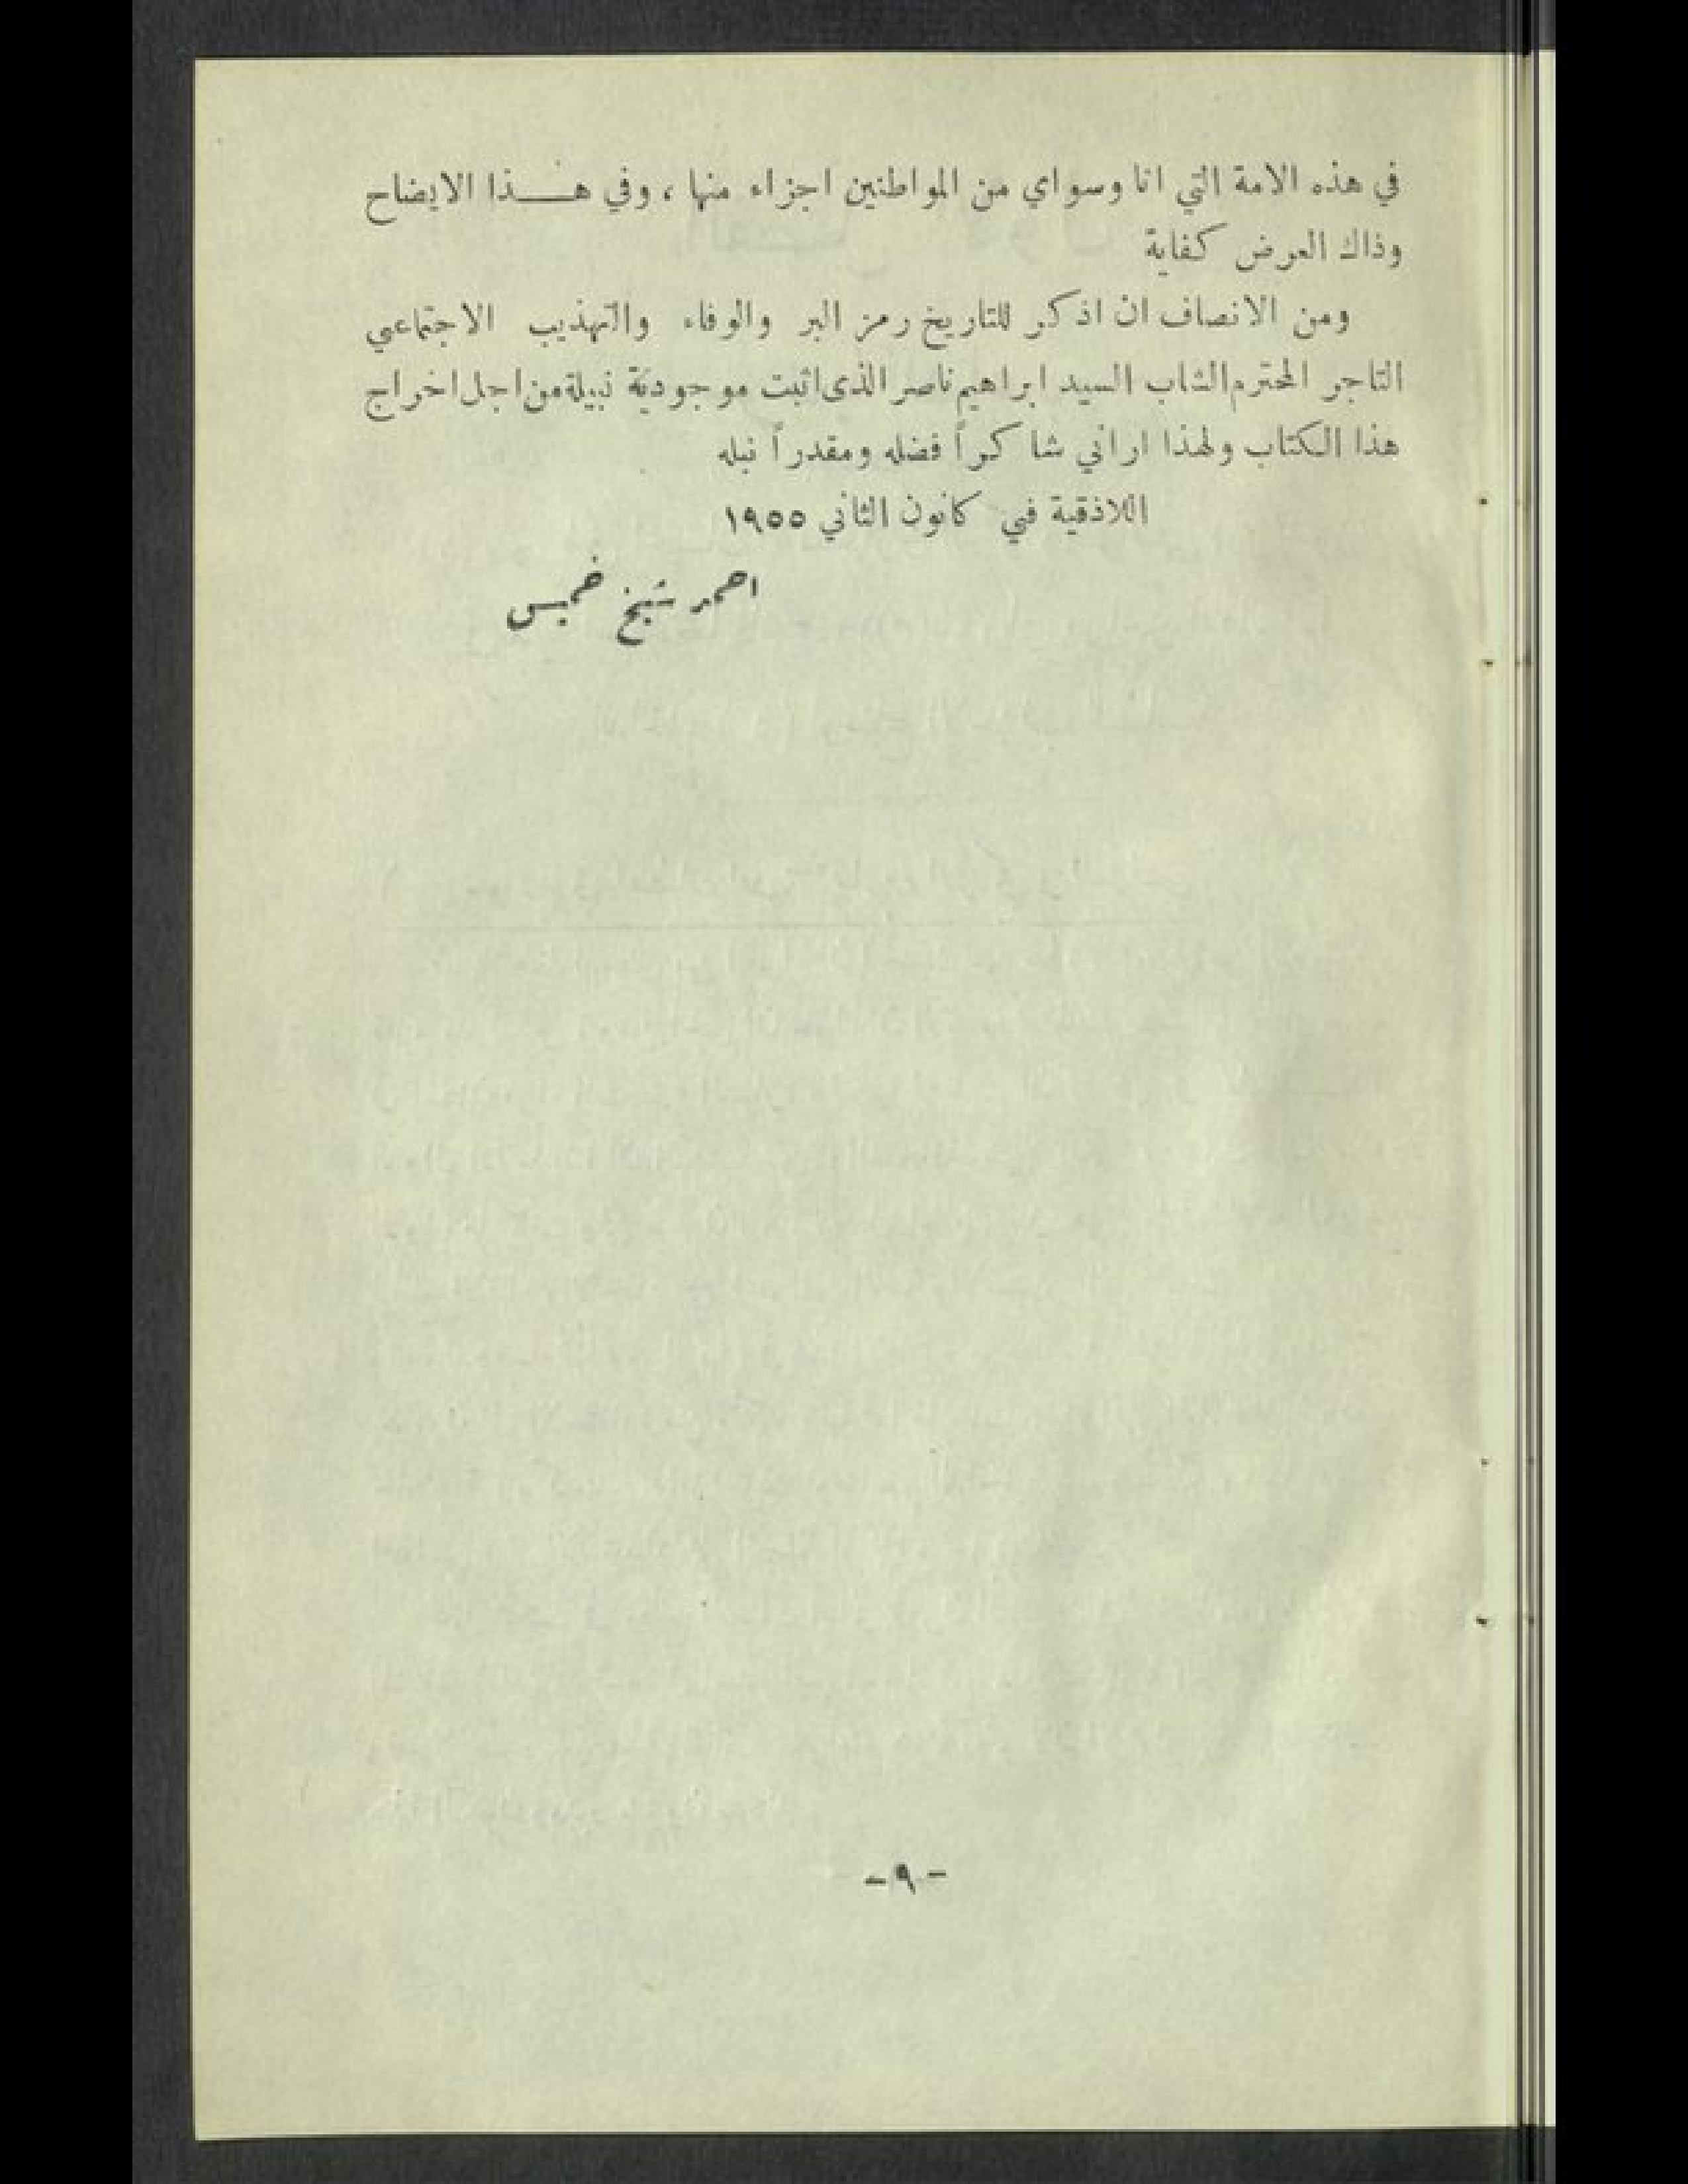 في هذه الامة التي انا وسواي من المواطنين اجزاء منها ، وفي هـــذا الايضاح
وذاك العرض كفاية
ومن الانصاف ان اذكر للتاريخ رمز البر والوفاء والتهذيب الاجتماعي
التاجر المحترم الشاب السيد ابراهيم ناصر الذى اثبت موجودية نبيلة من اجل اخراج
هذا الكتاب ولهذا اراني شاكراً فضله ومقدراً نبله
اللاذقية في كانون الثاني ١٩٥٥
احمد شيخ خميس
- ٩ -